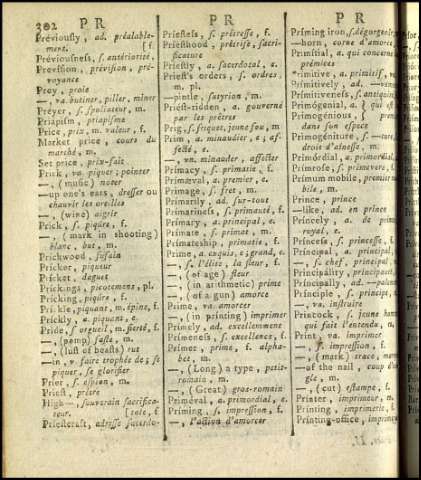 302 P R P R P R
Préviously, ad. préalable-
ment. [ f.
Préviousness, s. antériorité,
Prevision, prévision, pré-
voyance
Prey, proie
—, va. butiner, piller, miner
Préyer, s. spoliateur, m.
Priapism, priapisme
Price, prix, m. valeur, f.
Market price, cours du
marché, m.
Set price, prix-fait
Prick, va. piquer; pointer
—, (music) noter
—up one's ears, dresser ou
chauvir les oreilles
—, (wine) aigrir
Prick, s. piqûre, f.
—, (mark in shooting)
blanc, but, m.
Prickwood, fusain
Pricker, piqueur
Pricket, daguet
Prickings, picotemens, pl.
Pricking, piqûre, f.
Prickle, piquant, m. épine, f.
Prickly, a. piquiens, e.
Pride, s. orgueil, m. fierté, f.
—, (pomp) faste, m.
—, (lust of beasts) rut
—in, v. faire trophée de; se
piquer, se glorifier
Prier, s. espion, m.
Priest, prêtre
High—, souverain sacrifica-
teur. [ tole, f.
Priestcraft, adresse sacerdo-
Priestess, s. prêtresse, f.
Priesthood, prêtrise, sacri-
ficature
Priestly, a. sacerdotal, e.
Priest's orders, s. ordres,
m. pl.
—pintle, satyrion, m.
Priest-ridden, a. gouverné
par les prêtres
Prig, s. friquet, jeune fou, m
Prim, a. minaudier, e; af-
fecté, e.
—, vn. minauder, affecter
Primacy, s. primatie, f.
Primæval, a. premier, e.
Primage, s. fret, m.
Primarily, ad. sur-tout
Primariness, s. primauté, f.
Primary, a. principal, e.
Primate, s. primat, m.
Primateship, primatie, f.
Prime, a. exquis, e; grand, e.
—, s. l'élite, la fleur, f.
—, (of age) fleur
—, (in arithmetic) prime
—, (of a gun) amorce
Prime, va. amorcer
—, (in printing) imprimer
Primely, ad. excellemment
Primeness, s. excellence, f.
Primer, prime, f. alpha-
bet, m.
—, (Long) a type, petit-
romain, m.
—, (Great) gros-romain
Priméval, a. primordial, e.
Priming, s. impression, f.
—, l'action d'amorcer
Priming iron, s. dégorgeoir
—horn, corne d'amorce,
Primitial, a. qui concerne
prémices
Primitive, a. primitif,
Primitively, ad.
Primitiveness, s. antiquité
Primógenial, a. qui est
Primogénious,
dans son espece
Primogéniture, s.
droit d'aînesse, m.
Primórdial, a. primordial,
Primrose, s. primevere, f.
Primum mobile, premier
bile, m.
Prince, prince
—like, ad. en prince
Princely, a. de prince
royal, e.
Princess, s. princesse, f.
Principal, a. principal,
—, s. chef, principal
Principálity, principauté,
Principally, ad.
Principle, s. principe,
—, va. instruire
Princock, s. jeune homme
qui fait l'entendu,
Print, va. imprimer
—, s. impression, f.
—, (mark) trace,
—of the nail, coup d'on-
gle, m.
—, (cut) estampe, f.
Printer, imprimeur, m.
Printing, imprimerie,
Printing-office, imprimerie